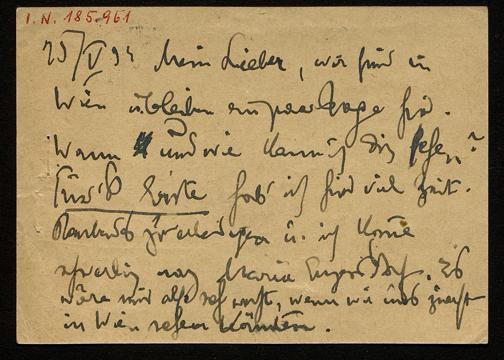 I. N. 185.961
25/V 94 Mein Lieber, wir sind in
Wien u bleiben ein paar Tage hier.
Wann und wie kann ich Dich sehen?
Fürs Erste hab' ich hier viel zeit-
zu erledigen u. ich könnte
schwerlich nach Maria Enzersdorf. Es
wäre mir also sehr recht, wenn wir uns zuerst
in Wien sehen könnten.